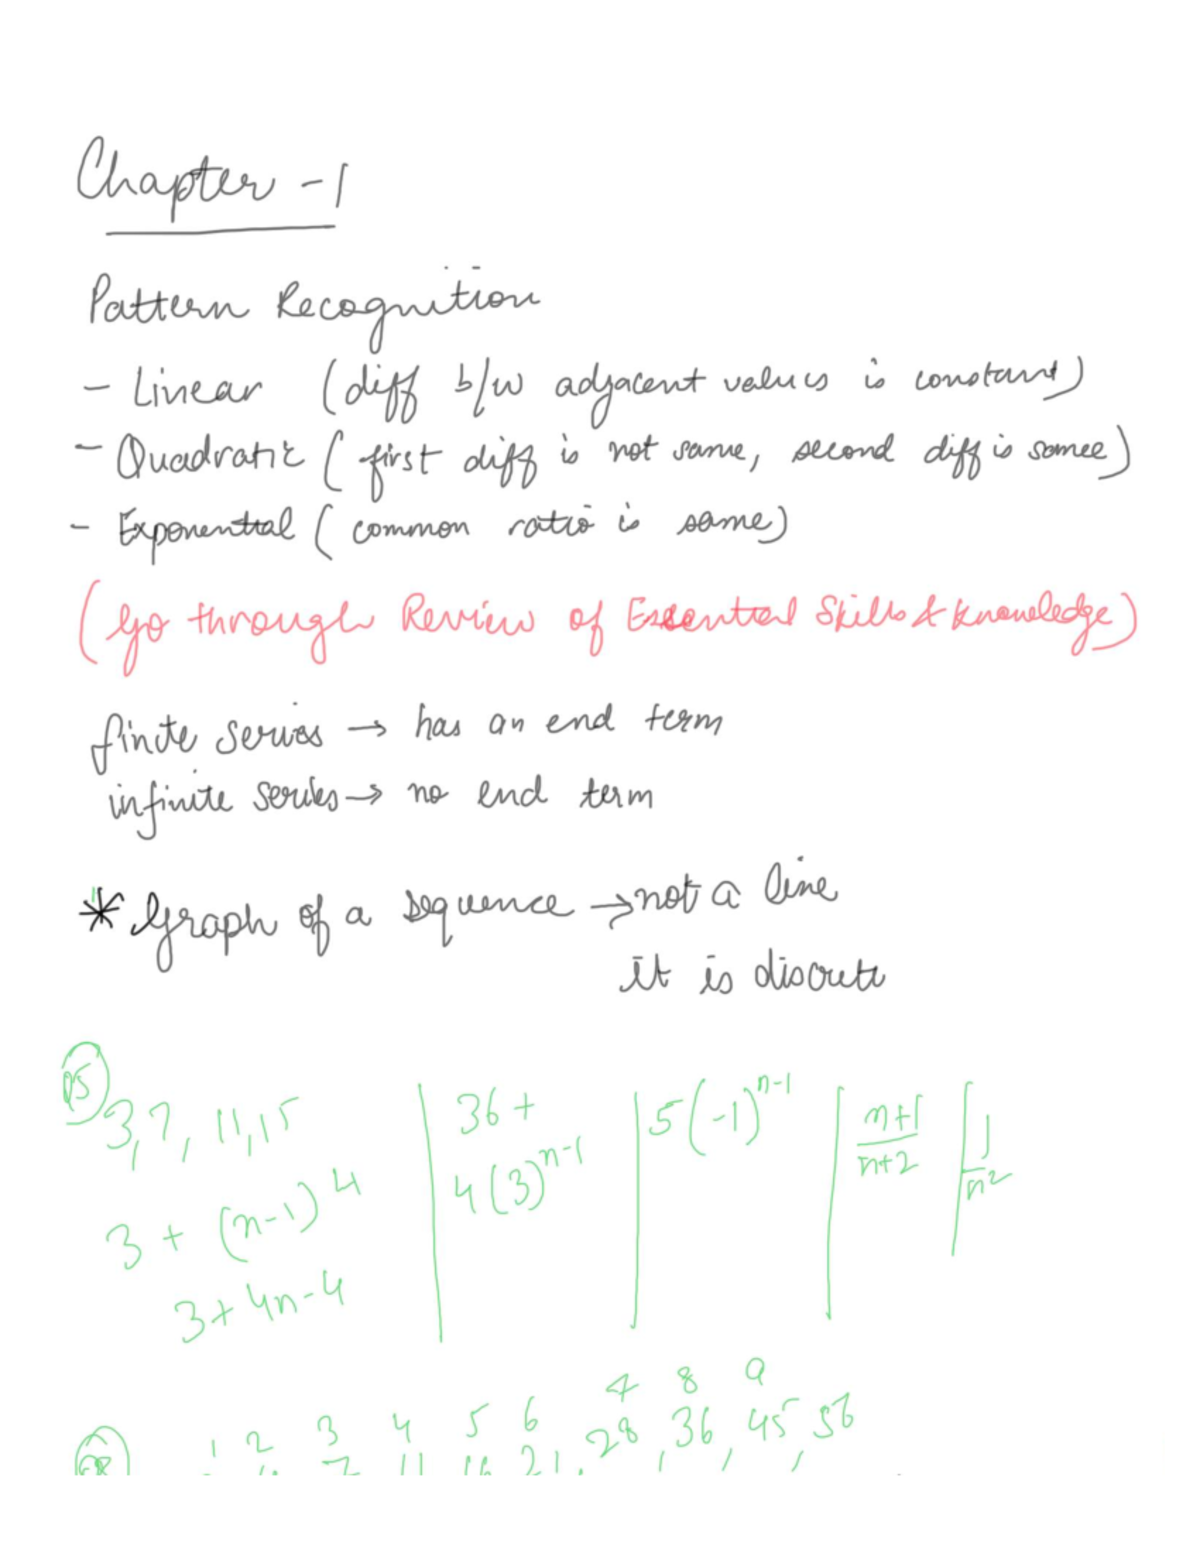 Chapter - 1
Pattern Recognition
- Linear (diff b/w adjacent values is constant)
- Quadratic (first diff is not same, second diff is samee)
- Exponential (common ratio is same)
(Go through Review of Essential Skills & knowledge)
finite series → has an end term
infinite series → no end term
* Graph of a sequence → not a line
it is discrete
Q5
3, 7, 11, 15
3 + (n-1) 4
3 + 4n - 4
36 +
4(3)^{n-1}
5(-1)^{n-1}
n+1
n+2
1
n²
7 8 9
1 2 3 4 5 6
28, 36, 45, 56